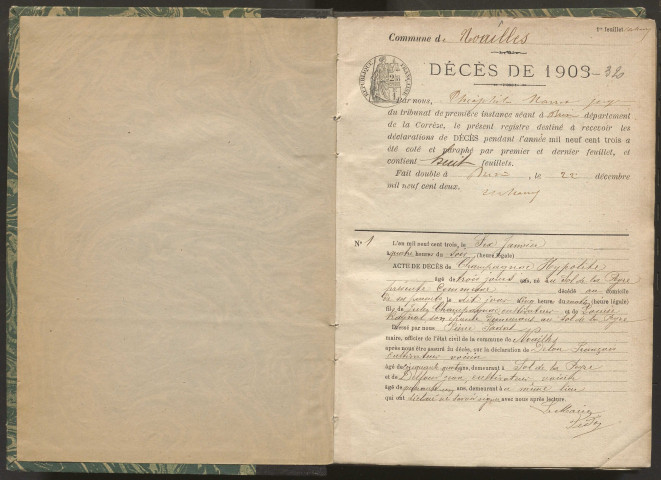 1er feuillet
Commune de Noailles
DÉCÈS DE 1903
RÉPUBLIQUE FRANÇAISE
Par nous, Théophile juge
du tribunal de première instance séant à Brive département
de la Corrèze, le présent registre destiné à recevoir les
déclarations de DÉCÈS pendant l'année mil neuf cent trois a
été coté et paraphé par premier et dernier feuillet, et
contient huit feuillets.
Fait double à Brive, le 22 décembre
mil neuf cent deux.
N° 1 L'an mil neuf cent trois, le Six Janvier
heures du soir (heure légale)
ACTE DE DÉCÈS de Champagnac Hypolite
âgé de trois jours né au Sol de la Faye
présente commune décédé au domicile
de ses parents le dit jour heures du (heure légale)
fils de Champagnac cultivateur et de Louise
son épouse demeurant au Sol de la Faye
Dressé par nous
maire, officier de l'état civil de la commune de Noailles
après nous être assuré du décès, sur la déclaration de François
cultivateur voisin
âgé de cinquante quatre ans, demeurant à Sol de la Faye
et de Jean cultivateur voisin
âgé de ans, demeurant à même lieu
qui ont déclaré ne savoir signer avec nous après lecture.
Le Maire